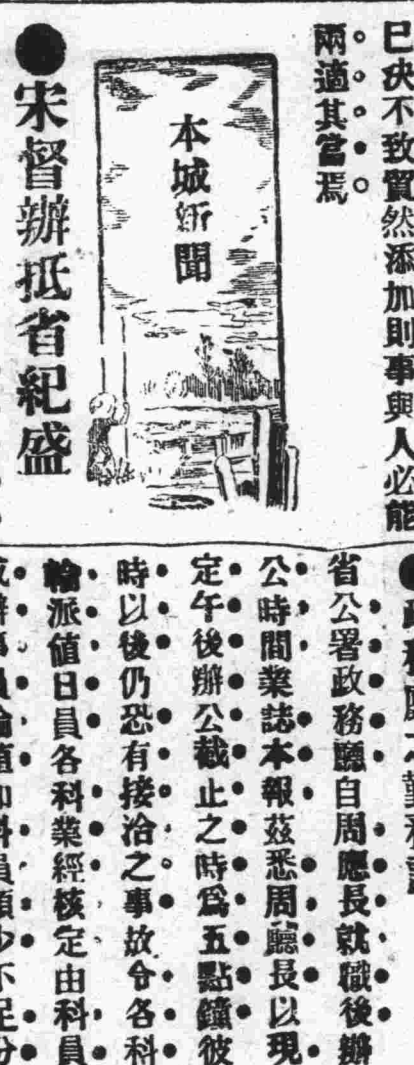 已決不致貿然添加則事與人必能
兩適其當焉
本城新聞
●宋督辦抵省紀盛
省公署政務廳自周廳長就職後辦
公時間業誌本報茲悉周廳長以現
定午後辦公截止之時爲五點鐘彼
時以後仍恐有接洽之事故令各科
輪派值日員各科業經核定由科員